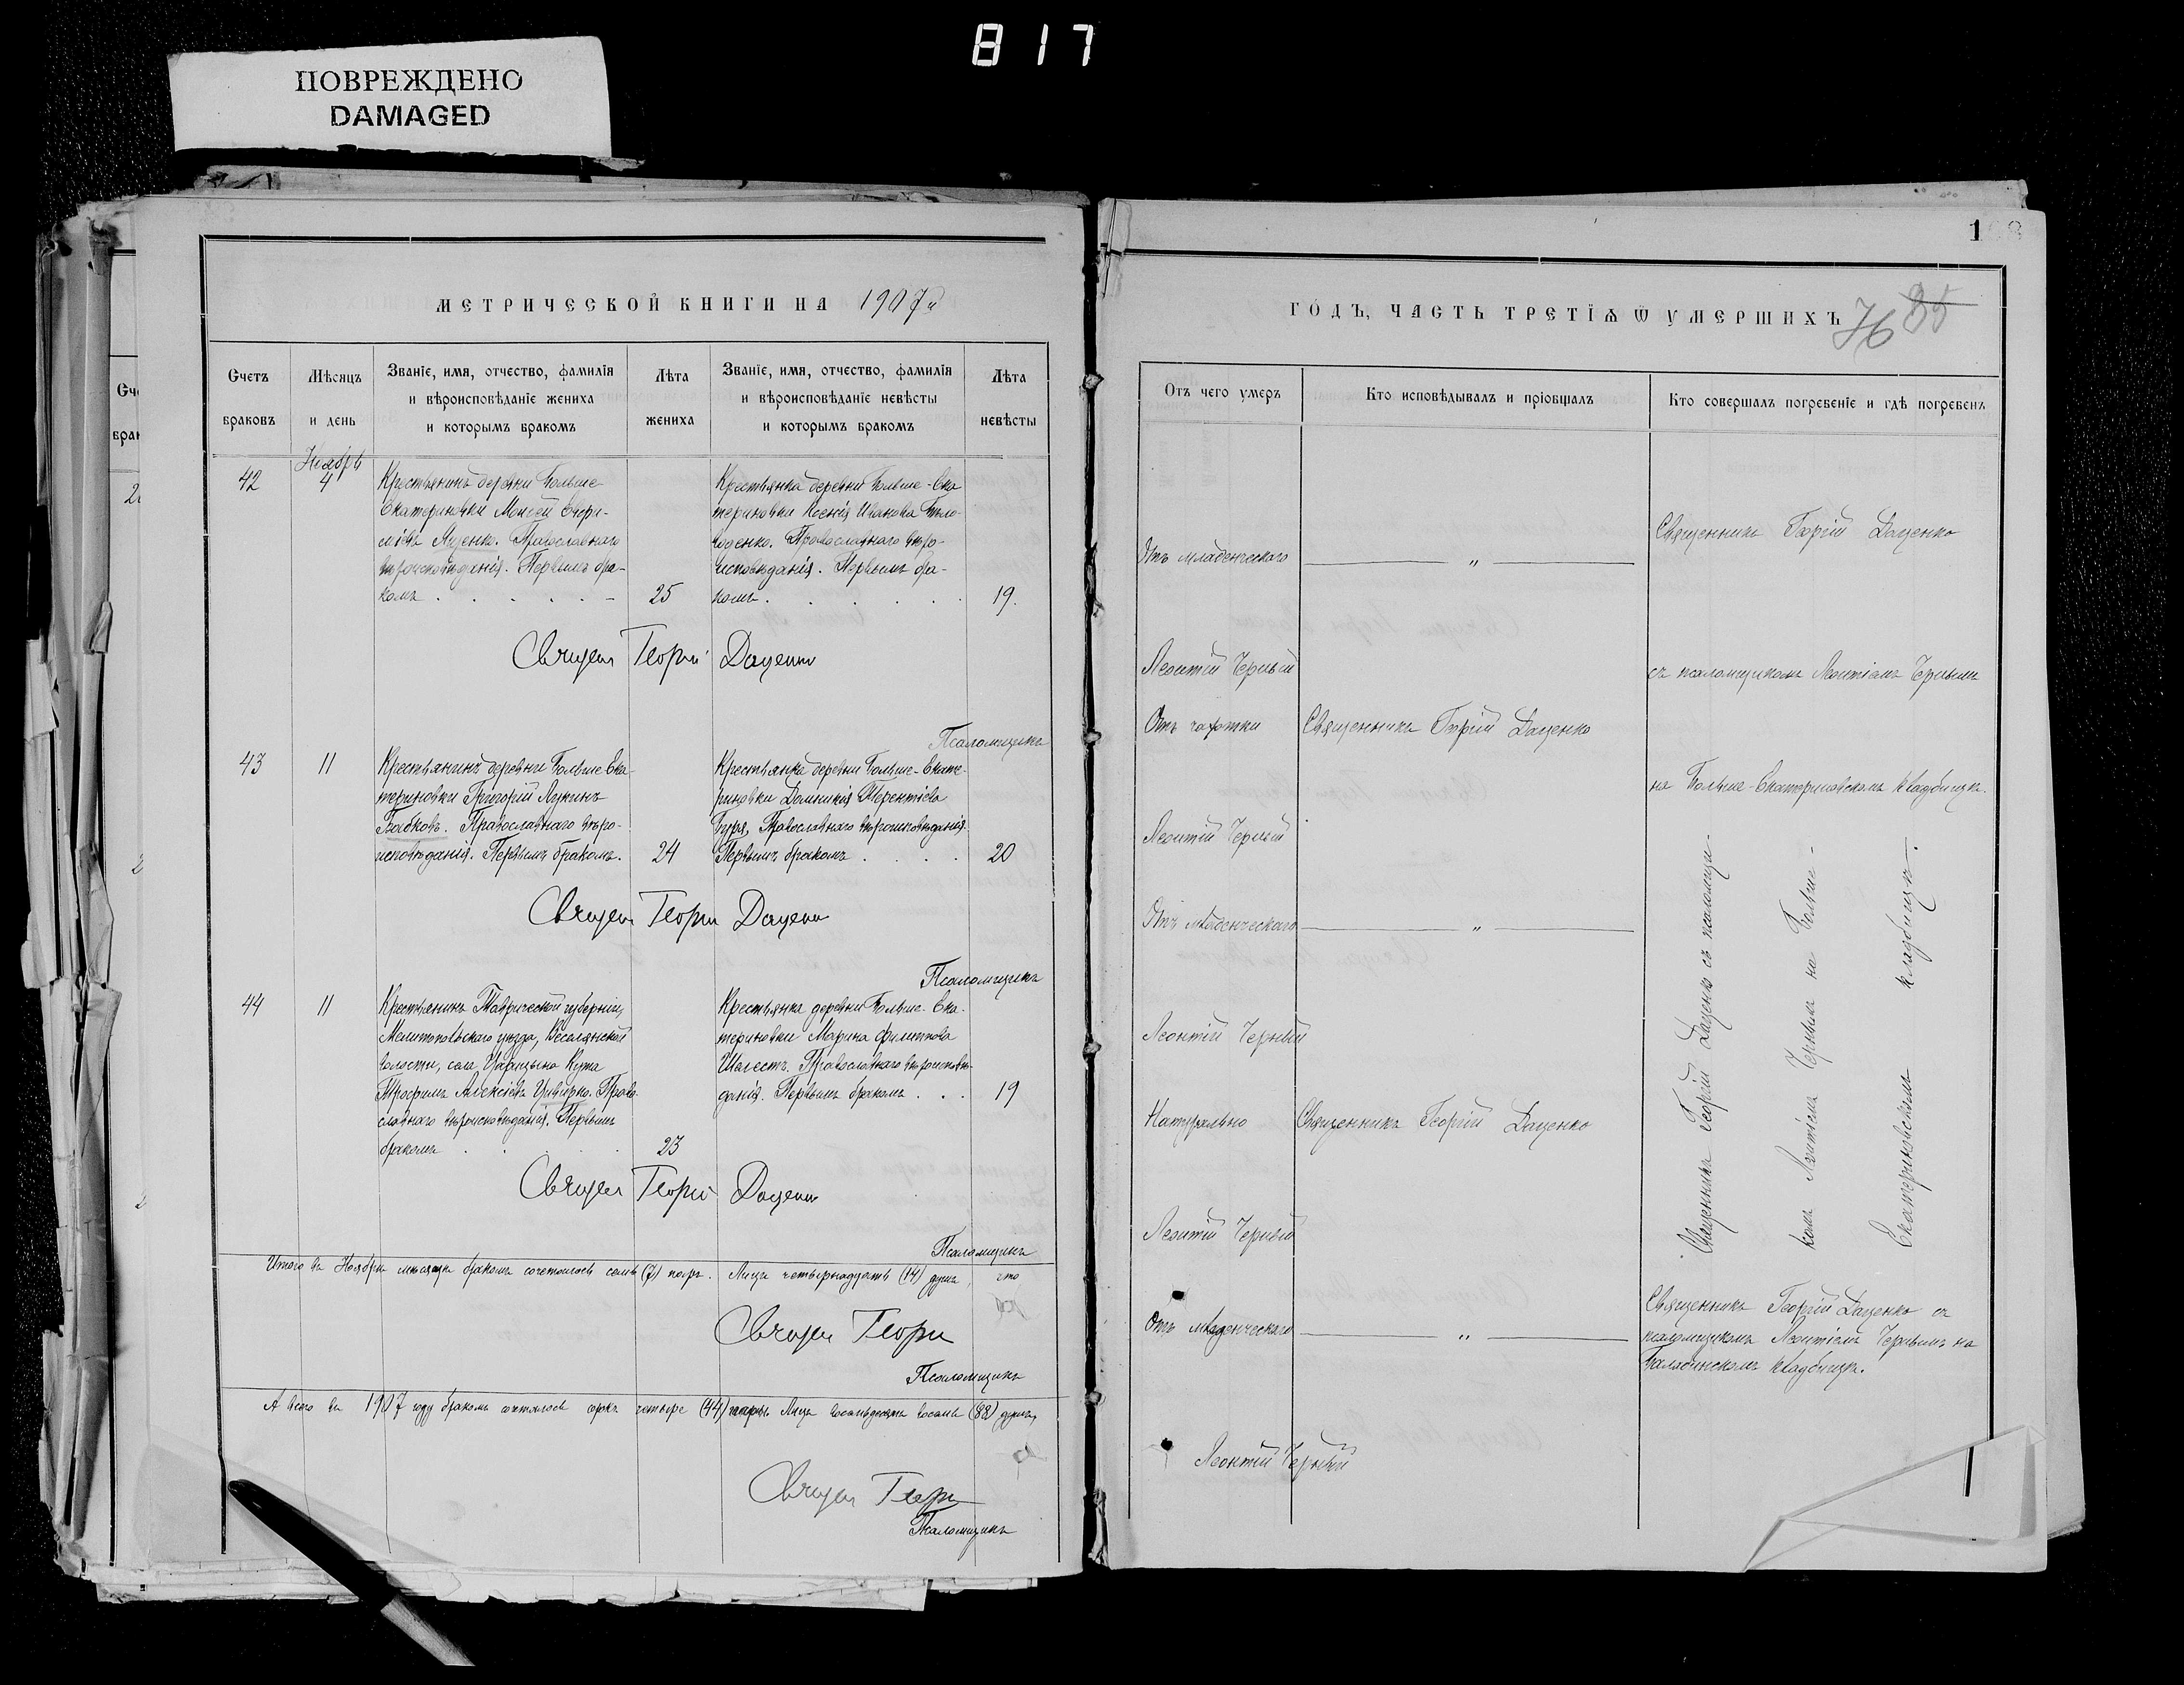 817
ПОВРЕЖДЕНО
DAMAGED
МЕТРИЧЕСКОЙ КНИГИ НА 1907й
Счетъ браковъ
Мѣсяцъ и день
Званіе, имя, отчество, фамилія
и вѣроисповѣданіе жениха
и которымъ бракомъ
Лѣта жениха
Званіе, имя, отчество, фамилія
и вѣроисповѣданіе невѣсты
и которымъ бракомъ
Лѣта невѣсты
Ноябрь
42
4
Крестьянинъ деревни Больше
Екатериновки Моисей
Православнаго
вѣроисповѣданія. Первымъ бра-
комъ
25
Крестьянка деревни Больше-Ека
териновки Ксенія Иванова Бѣло-
Православнаго вѣро-
исповѣданія. Первымъ бра-
комъ
19.
Священ Георгій Даценко
Псаломщикъ
43
11
Крестьянинъ деревни Больше Ека-
териновки Григорій Лукинъ
Бабковъ. Православнаго вѣро-
исповѣданія. Первымъ бракомъ.
24
Крестьянка деревни Больше-Екате-
риновки Домникія Терентіева
Буря, Православнаго вѣроисповѣданія.
Первымъ бракомъ
20
Священ Георгій Даценко
Псаломщикъ
44
11
Крестьянинъ Таврической губерніи,
Мелитопольскаго уѣзда, Веселянской
волости, села Царицына Кута
Трофимъ Алексіевъ Цивирко. Право-
славнаго вѣроисповѣданія. Первымъ
бракомъ
23
Крестьянка деревни Больше-Ека-
териновки Марина Филиппова
Шелестъ. Православнаго вѣроисповѣ-
данія. Первымъ бракомъ
19
Священ Георгій Даценко
Псаломщикъ
Итого въ Ноябрѣ мѣсяцѣ бракомъ сочеталось семь (7) паръ. Лицъ четырнадцать (14) душъ, что
Священ Георгі
Псаломщикъ
А всего въ 1907 году бракомъ сочеталось сорокъ четыре (44) пары Лицъ восемьдесятъ восемь (88) душъ,
Священ Георгі
Псаломщикъ
1
ГОДЪ, ЧАСТЬ ТРЕТІѦ Ѿ УМЕРШИХЪ
76 85
Отъ чего умеръ
Кто исповѣдывалъ и пріобщалъ
Кто совершалъ погребеніе и гдѣ погребенъ
Отъ младенческаго
"
Священникъ Георгій Даценко
Леонтій Черный
съ псаломщикомъ Леонтіемъ Чернымъ
Отъ чахотки
Священникъ Георгій Даценко
на Больше-Екатериновскомъ кладбищѣ.
Леонтій Черный
Отъ младенческаго
"
Леонтій Черный
Натурально
Священникъ Георгій Даценко
Леонтій Черный
Священникъ Георгій Даценко съ псаломщи-
комъ Леонтіемъ Чернымъ на Больше-
Екатериновскомъ кладбищѣ.
Отъ младенческаго
"
Священникъ Георгій Даценко съ
псаломщикомъ Леонтіемъ Чернымъ на
Балабинскомъ кладбищѣ.
Леонтій Черный